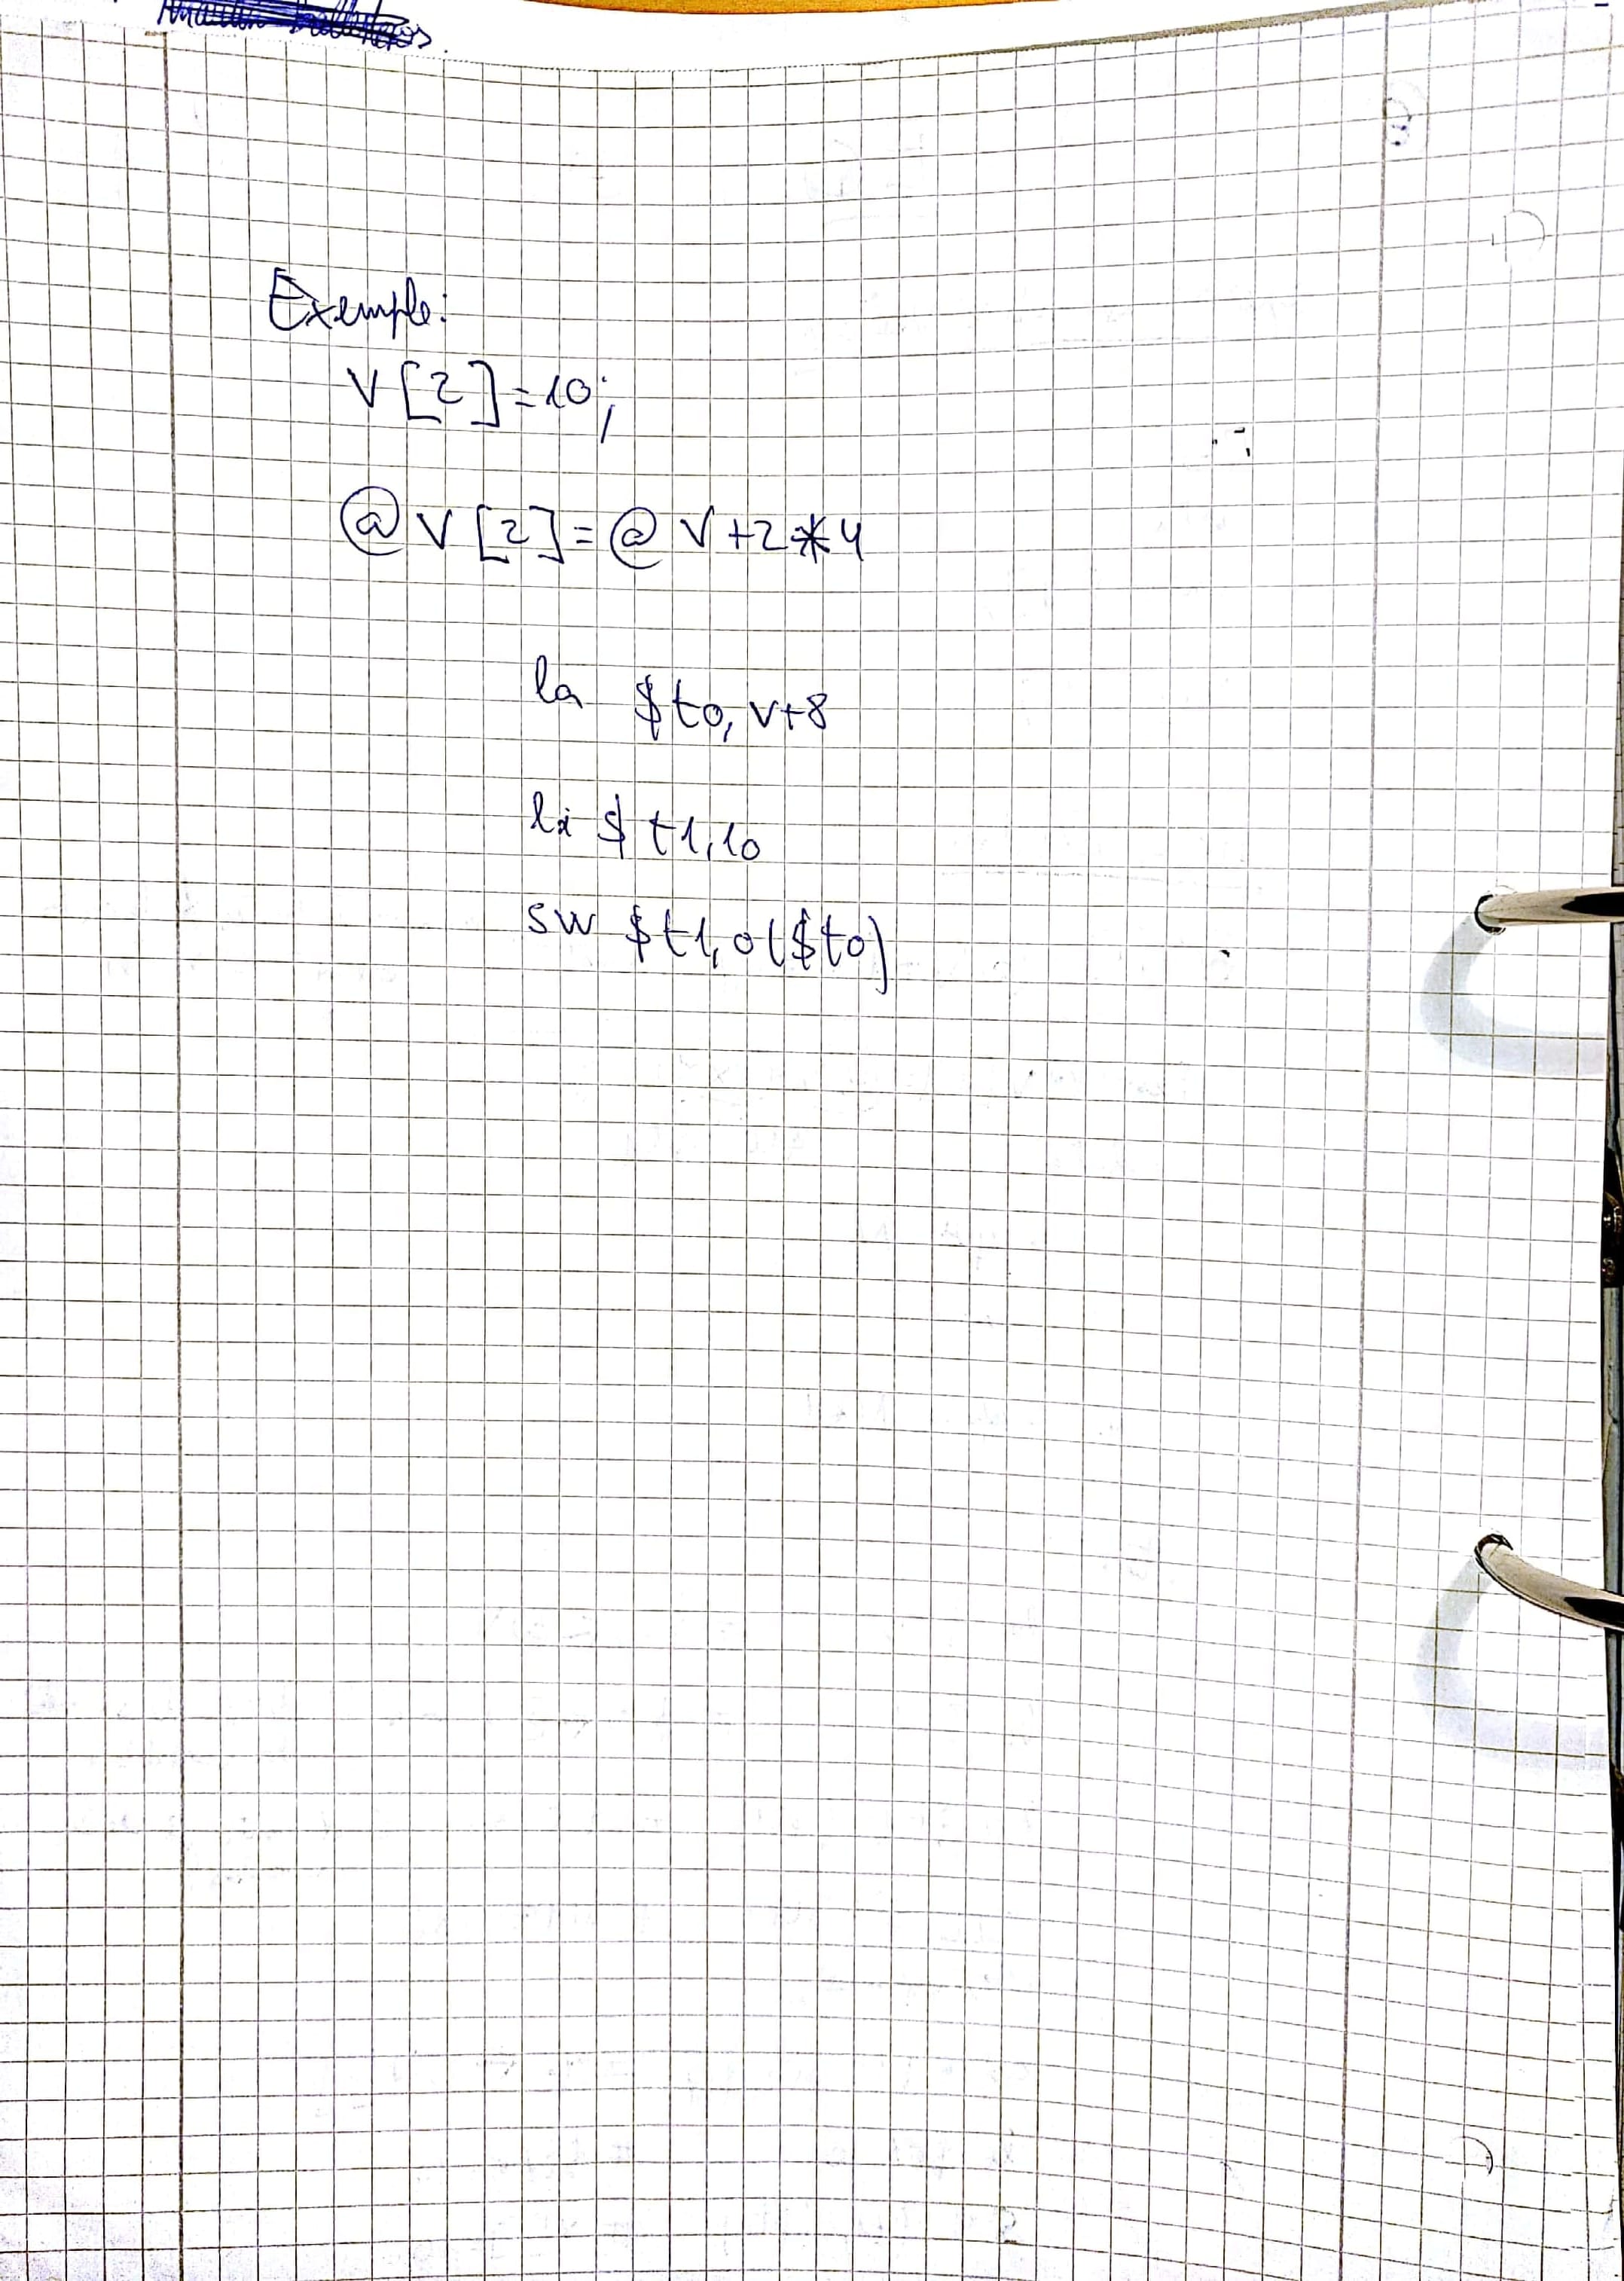 Exemple:
V[2]=10;
@V[2]=@V+2*4
la $t0, v+8
li $t1,10
sw $t1,0($t0)